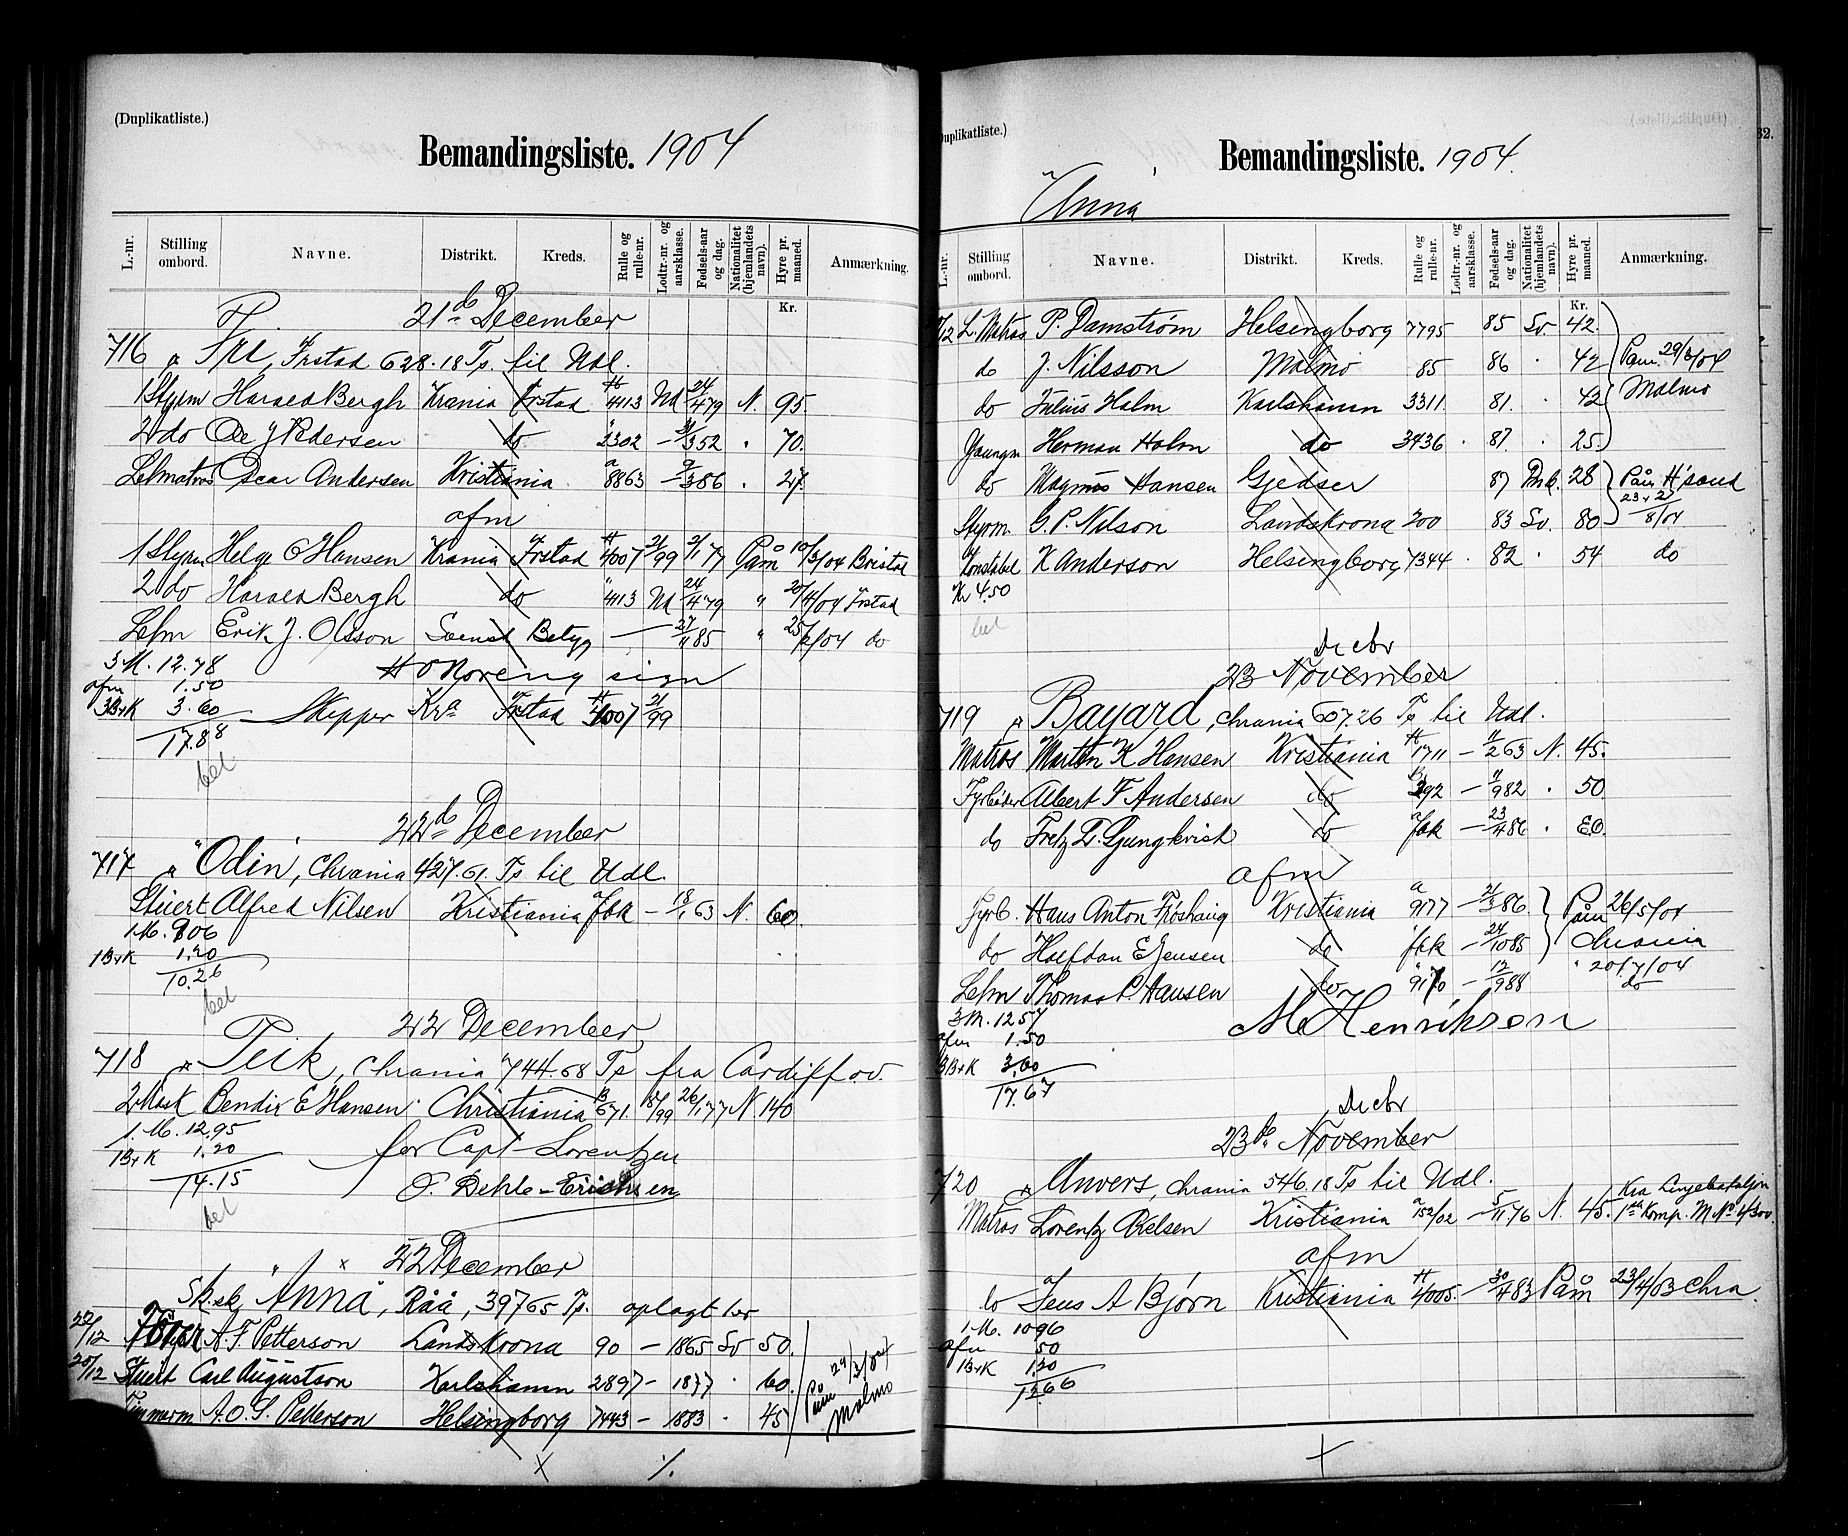 (Duplikatliste.)
Bemandingsliste. 1904
L.-nr. Stilling ombord. Navne. Distrikt. Kreds. Rulle og rulle-nr. Lodtr.-nr. og aarsklasse. Fødsels-aar og dag. Nationalitet (hjemlandets navn). Hyre pr. maaned. Anmærkning.
Kr.
21de December
716 Fri, Frstad 628.18 Ts. til Udl.
1 Styrm Harald Bergh Krania Frstad H 4113 Ud 24/4 79 N. 95.
2 do Ole J Pedersen do " 2302 — 3 52 " 70.
Letmatros Oscar Andersen Kristiania a 8863 — 9/3 86 " 27.
afm
1 Styrm Helge O Hansen Krania Frstad H 4007 21/99 2/1 77 Påm 10/3/04 Bristol
2 do Harald Bergh do " 4113 Ud 24/4 79 " 20/4/04 Frstad
Letm Erik J. Olsson Svensk Betyg — 27/11 85 " 25/2/04 do
3 M. 12.78
H O Noreng sign
afm 1.50
3 B+K 3.60 Skipper Kra Frstad H 4007 21/99
17.88
bet
22de December
717 "Odin", Chrania 427.61 Ts til Udl.
Stuert Alfred Nilsen Kristiania a fbk — 18/1 63 N. 60.
1 M. 906
1 B+K 1.20
10.26
bet
22 December
718 Peik, Chrania 744.68 Ts fra Cardiff ov.
2 Mask Bendix E Hansen Christiania B 671. 187/99 26/1 77 N. 140
1. M. 12.95
1 B+K 1.20 for Capt Lorentzen
14.15 O. Dehle-Erichsen
bet
22 December
Sk.sk, "Anna", Råå, 397.65 Ts. oplagt her
22/12 A. F. Petterson Landskrona 90 — 1865 Sv 50.
20/12 Stuert Carl Augustson Karlshamn 2897 — 1877 " 60. Påm 29/3/04
Timmerm A. O. S. Petterson Helsingborg 7443 — 1883 " 45 Malmo
×
./.
(Duplikatliste.)
Bemandingsliste. 1904.
"Anna"
L.-nr. Stilling ombord. Navne. Distrikt. Kreds. Rulle og rulle-nr. Lodtr.-nr. og aarsklasse. Fødsels-aar og dag. Nationalitet (hjemlandets navn). Hyre pr. maaned. Anmærkning.
Kr.
/12 L. Matros P. Damstrøm Helsingborg 7795 85 Sv. 42.
do J. Nilsson Malmö 85 86 " 42 Påm. 29/3/04
do Julius Holm Karlshamn 3311. 81. " 42 Malmo
Jaungm Herman Holm do 3436 " 87 " 25.
do Magnus Hansen Gjedser 87 Dnk. 28 Påm H'sand
Styrm. G. P. Nilson Landskrona 200 83 Sv. 80 23+27/8/04
Konstabel K Anderson Helsingborg 7344 " 82 " 54 do
Kr 4.50
bet
Decbr
23 November
719 Bayard, Chrania 607.26 Ts til Udl.
Matros Martin K Hansen Kristiania H 1711 — 11/2 63 N. 45.
Fyrbøder Albert F Andersen do B 392 — 11/9 82 " 50
do Fretz L. Ljungkvist do a fbk — 23/4 86 " 50.
afm
Fyrb. Hans Anton Frøshaug Kristiania a 9177 — 21/3 86. Påm 26/5/04
do Halfdan E Jensen do " fbk — 24/10 85 Chrania
Letm Thomas P. Hansen do " 9170 — 12/9 88 " 20/7/04 do
3 M. 12.57 M Henrikson
afm 1.50
3 B+K 3.60
17.67
Decbr
23de November
720 Anvers, Chrania 546.18 Ts til Udl. Kra Linjebataljon
Matros Lorentz Olsen Kristiania a 152/02 — 5/11 76 N. 45. 1ste Komp. M No 4/300.
afm
do Jens A Bjørn Kristiania H 4005. — 30/4 83 Påm 23/4/03 Chra.
1 M. 1096
afm 50
1 B+K 1.20
12.66
+